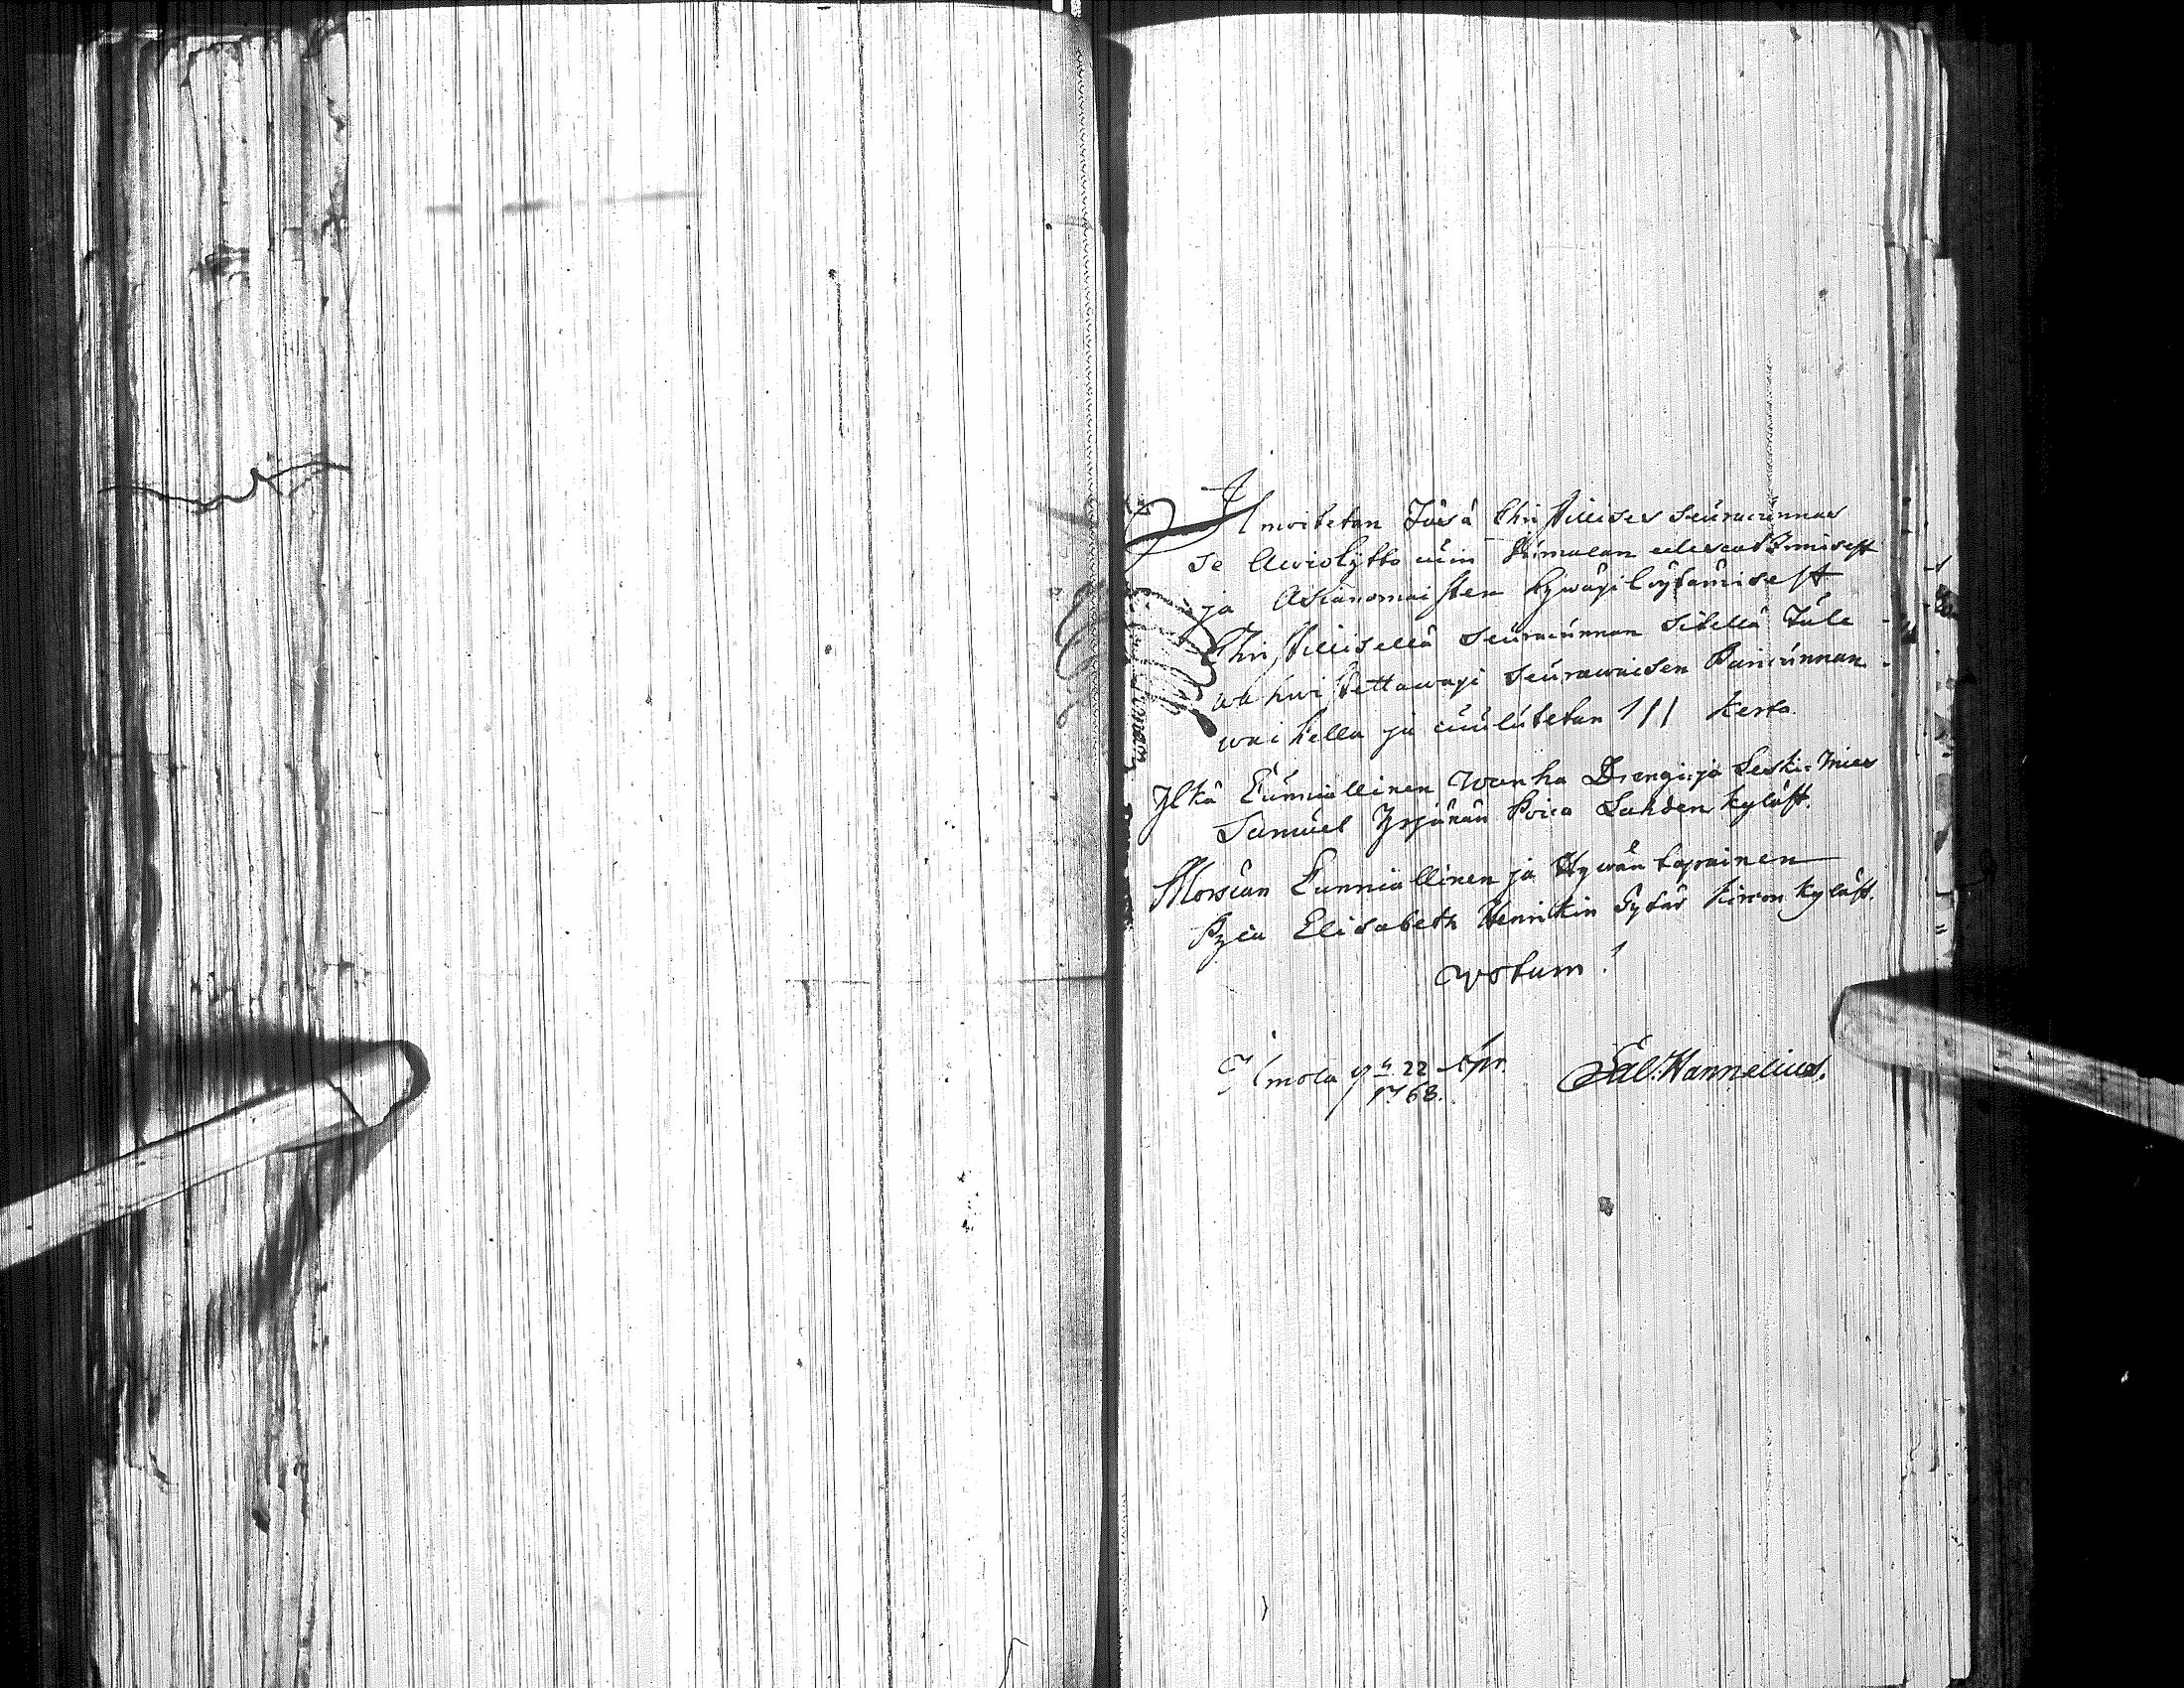 Ilmoitetan Täsä Christillises seuracunnas
se Awiolijtto cuin Jumalan edescatzomisest
ja Asianomaisten hywäxi löytämisest
Christillisellä seuracunnan sitellä Tule
wahwistettawaxi seurawaisen Pariscunnan
waihella ja cuulutetan 1 / / Kerta.
Ylkä Cunniallinen wanha Drengi ja Leski-Mies
Samuel Yrjänän Poica Lahden kyläst.
Morsian Cunniallinen ja Hywäntapainen
Pyca Elisabeth Henrikin Tytär kiwon kyläst.
votum!
Ilmola 22 Apr.
1768.
Sal. Hannelius.